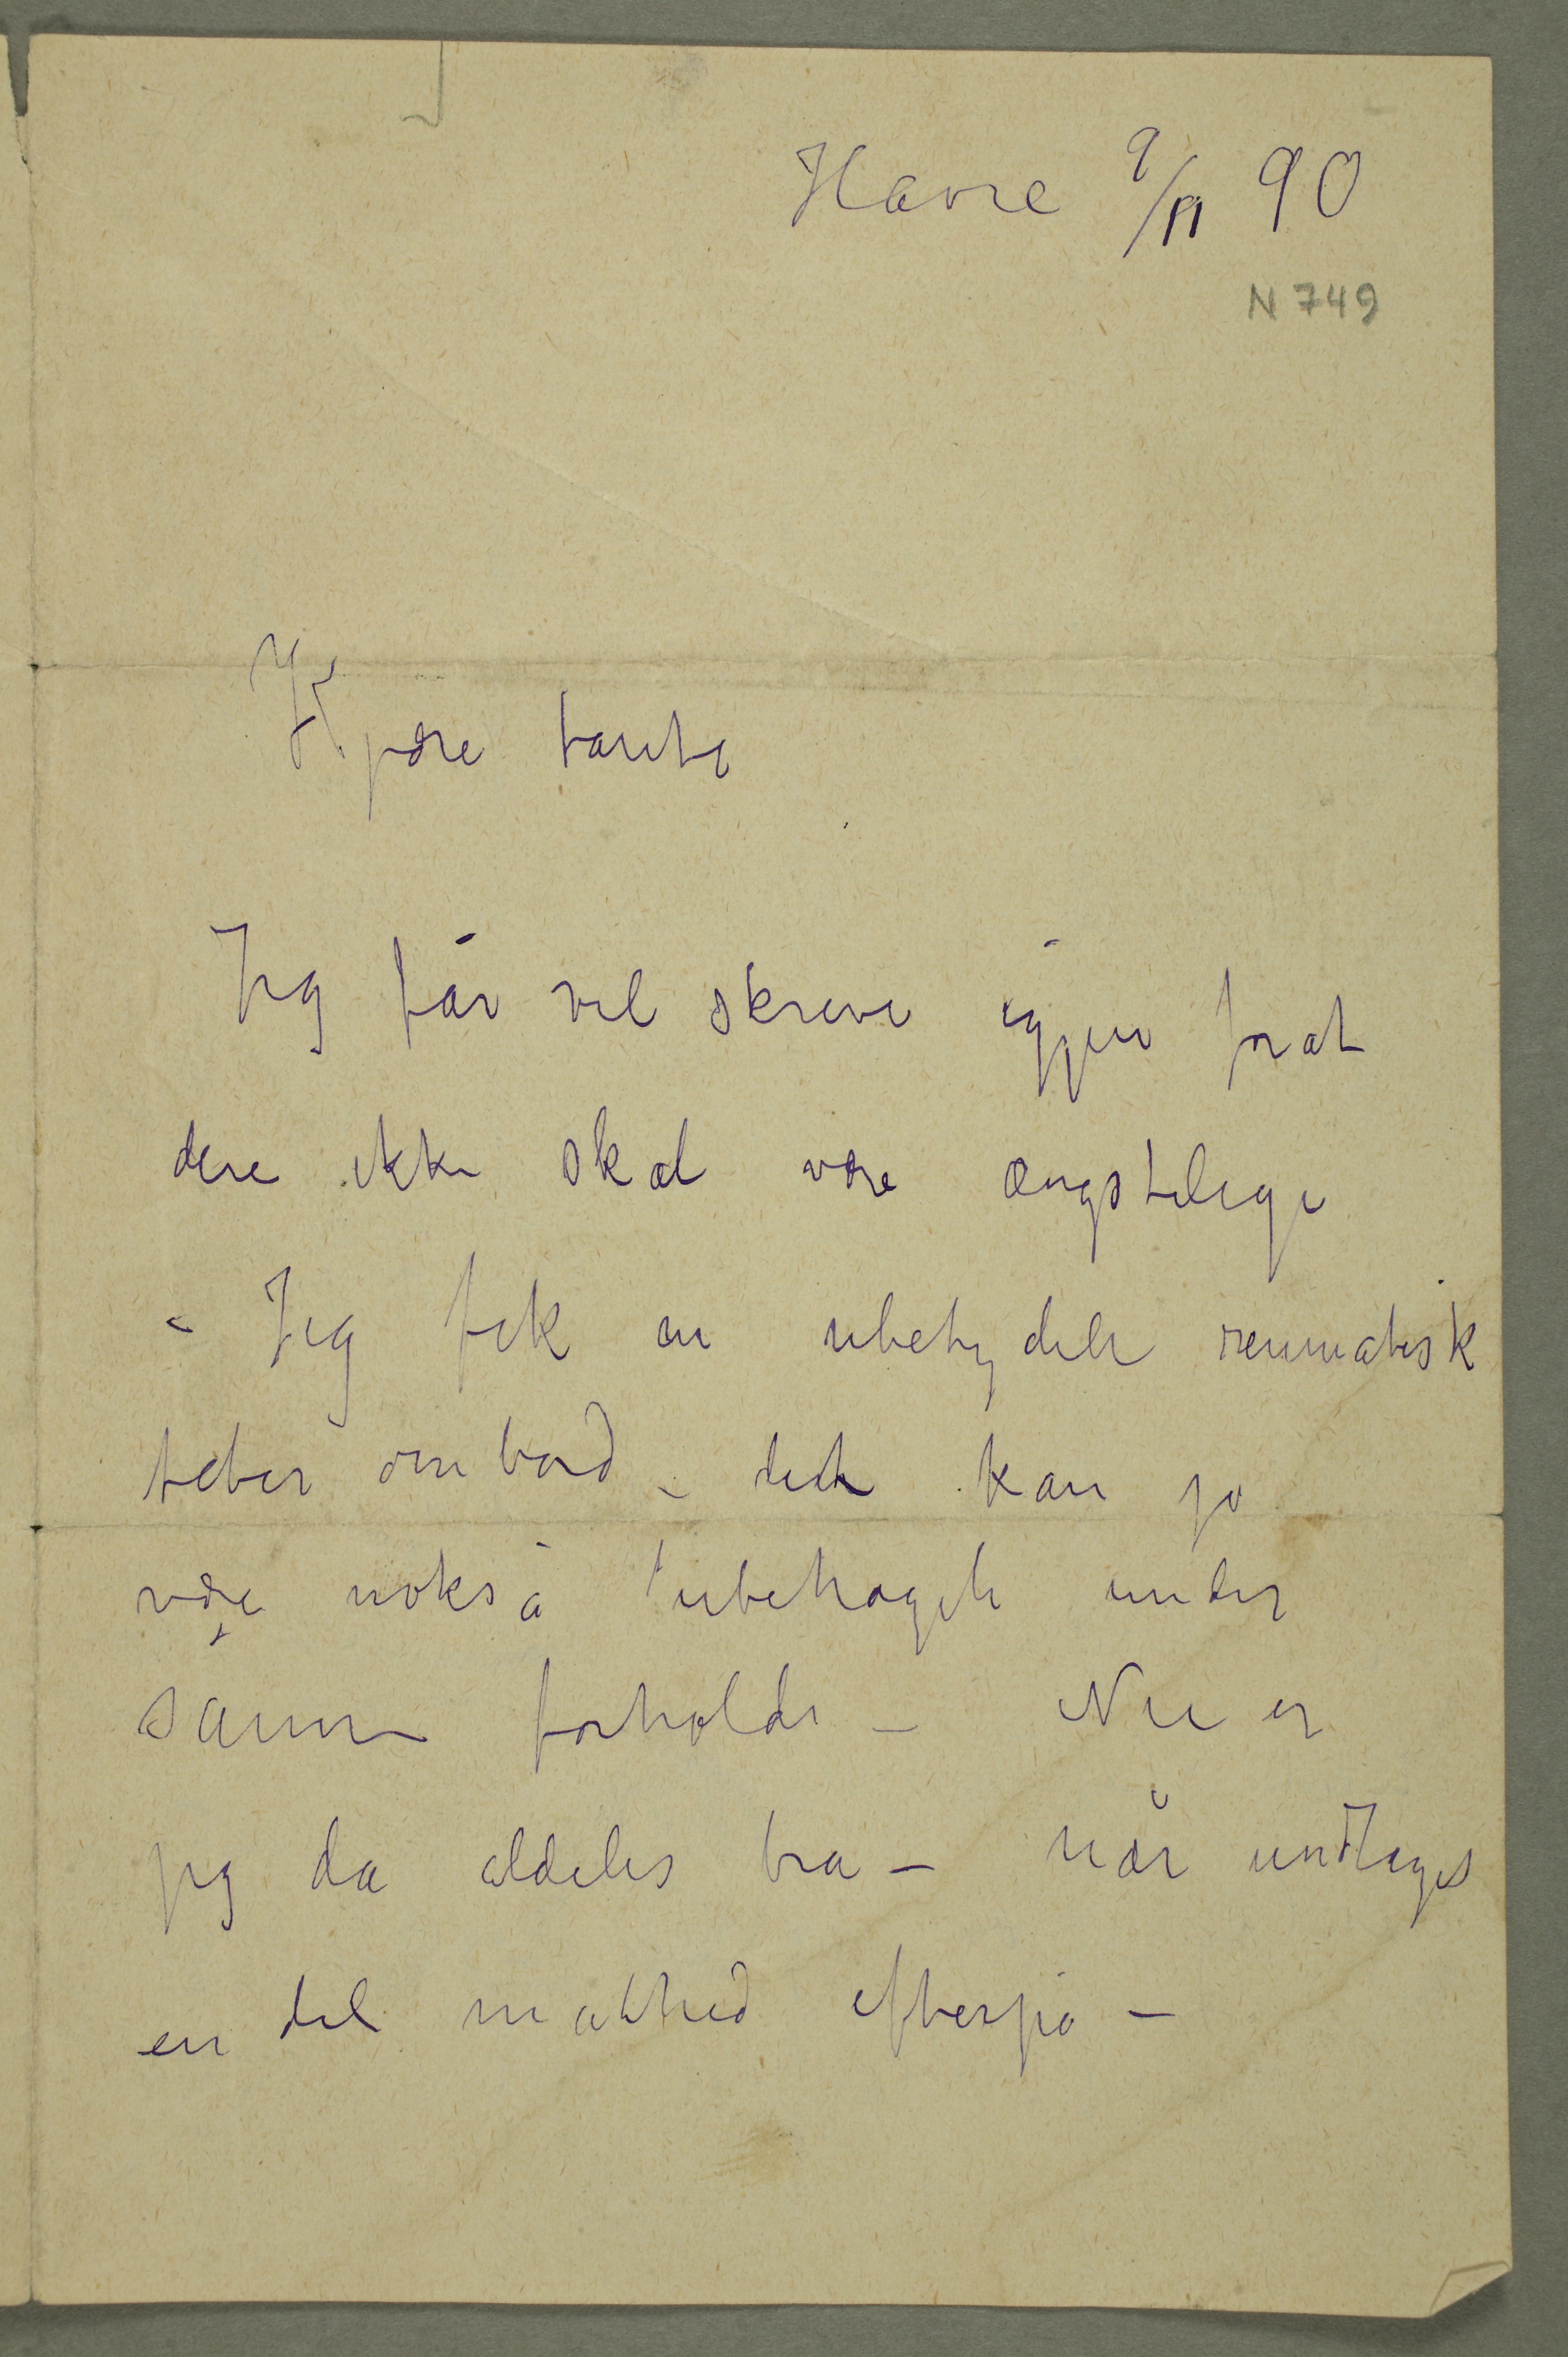 Havre 9/11 90
N 749
Kjære tante
Jeg får vel skrive igjen forat
dere ikke skal være ængstelige
– Jeg fik en ubetydeli reumatisk
feber ombord – det kan jo
være nokså ubehageli under
sånne forholde – Nu er
jeg da aldeles bra – når undtages
en del mathed efterpå –